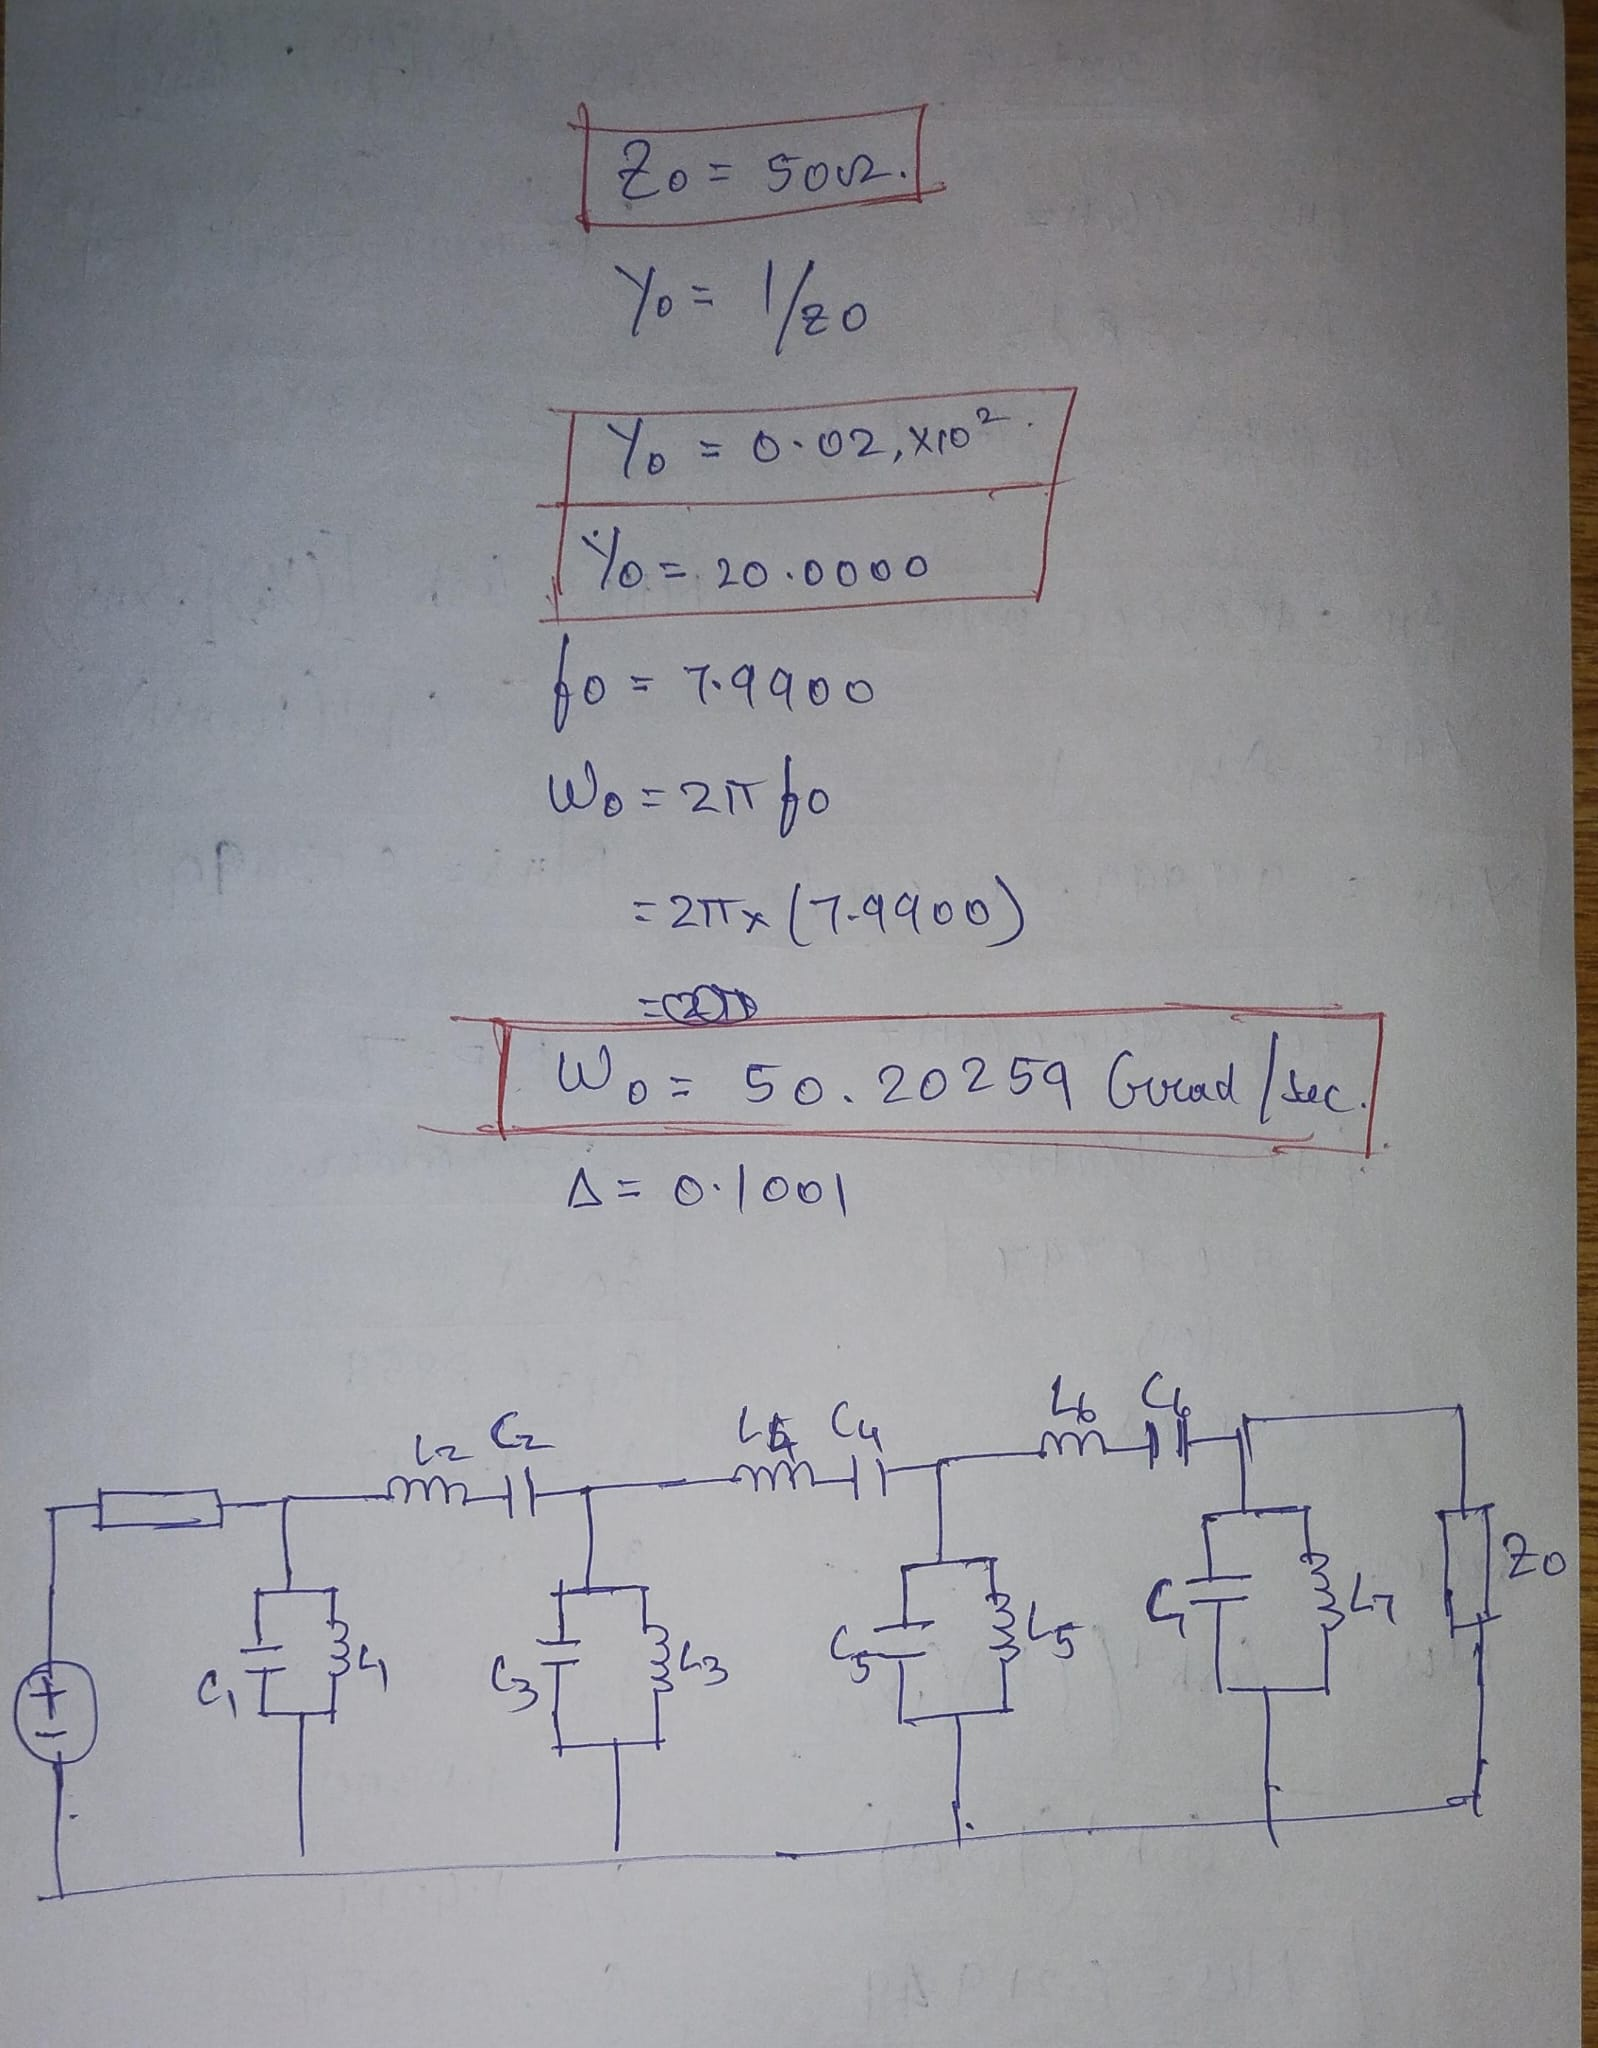 Z0 = 50Ω.
Y0 = 1/Z0
Y0 = 0.02,×10²
Y0 = 20.0000
f0 = 7.9900
W0 = 2π f0
= 2π × (7.9900)
=
W0 = 50.20259 Grad/sec.
Δ = 0.1001
L2 C2 L4 C4 L6 C6
C1 L1 C3 L3 C5 L5 C7 L7 Z0
+
-